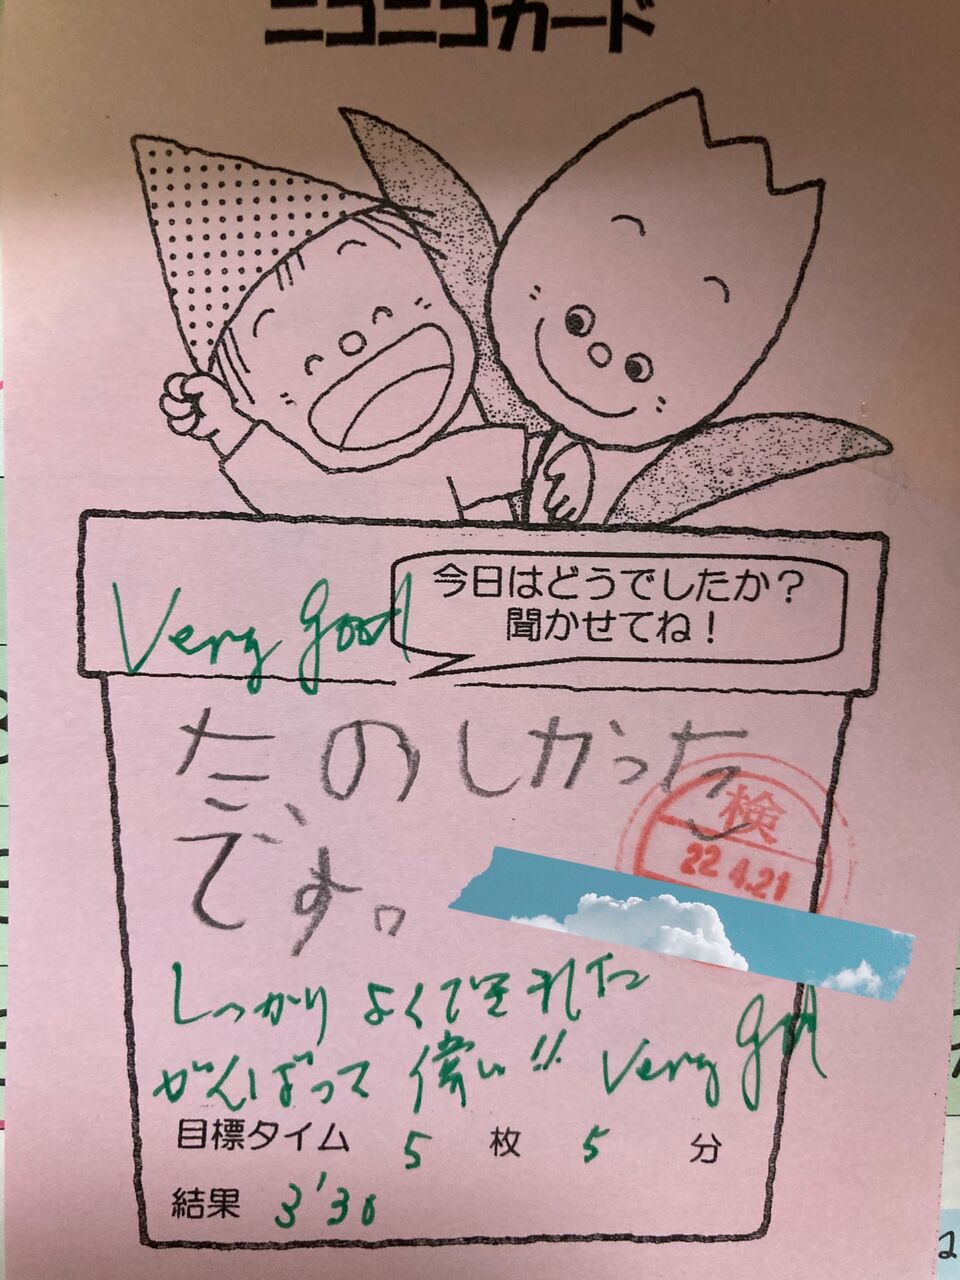 ニコニコカード
今日はどうでしたか？
聞かせてね！
Very good
たのしかった
です。
検
22.4.21
しっかり よくできました
がんばって 偉い!! Very good
目標タイム 5 枚 5 分
結果 3'30
2